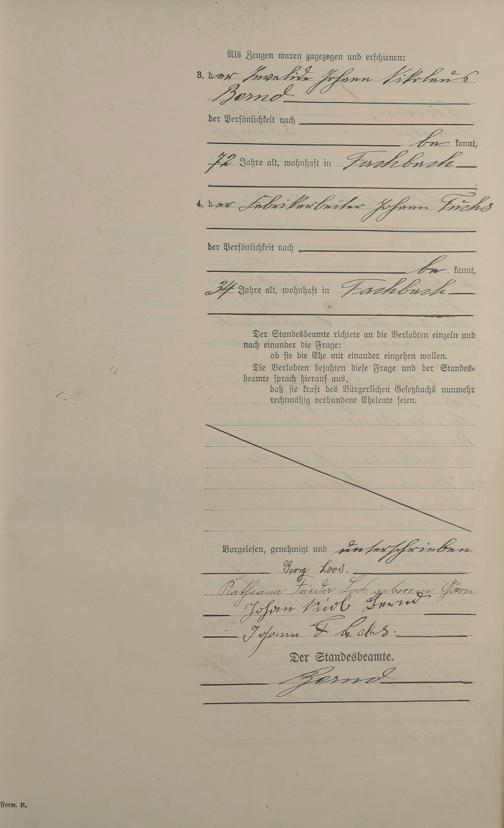 Als Zeugen waren zugezogen und erschienen:
3. der Invalide Johann Nikolaus
Bernd
der Persönlichkeit nach
be kannt,
72 Jahre alt, wohnhaft in Fachbach
4. der Fabrikarbeiter Johann Fuchs
der Persönlichkeit nach
be kannt,
34 Jahre alt, wohnhaft in Fachbach
Der Standesbeamte richtete an die Verlobten einzeln und
nach einander die Frage:
ob sie die Ehe mit einander eingehen wollen.
Die Verlobten bejahten diese Frage und der Standes=
beamte sprach hierauf aus,
daß sie kraft des Bürgerlichen Gesetzbuchs nunmehr
rechtmäßig verbundene Eheleute seien.
Vorgelesen, genehmigt und unterschrieben
Georg Loos.
Loos geborene
Johan Nicol Bernd
Johann Fuchs.
Der Standesbeamte.
Bernd
Form. B.